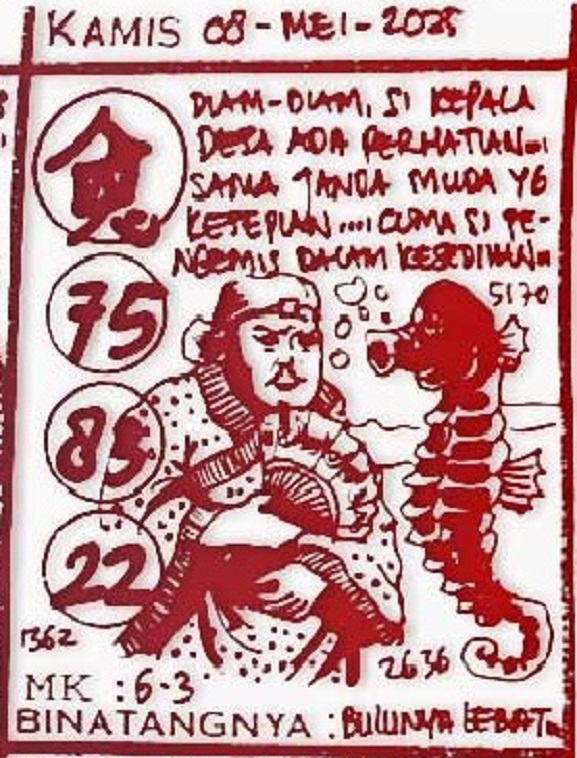 KAMIS 08-MEI-2025
DIAM-DIAM, SI KEPALA
DESA ADA PERHATIAN..
SAMA JANDA MUDA YG
KESEPIAN .... CUMA SI PE-
NGEMIS DALAM KESEDIHAN..
75
5170
85
22
1362
2636
MK : 6-3
BINATANGNYA : BULUNYA LEBAT..